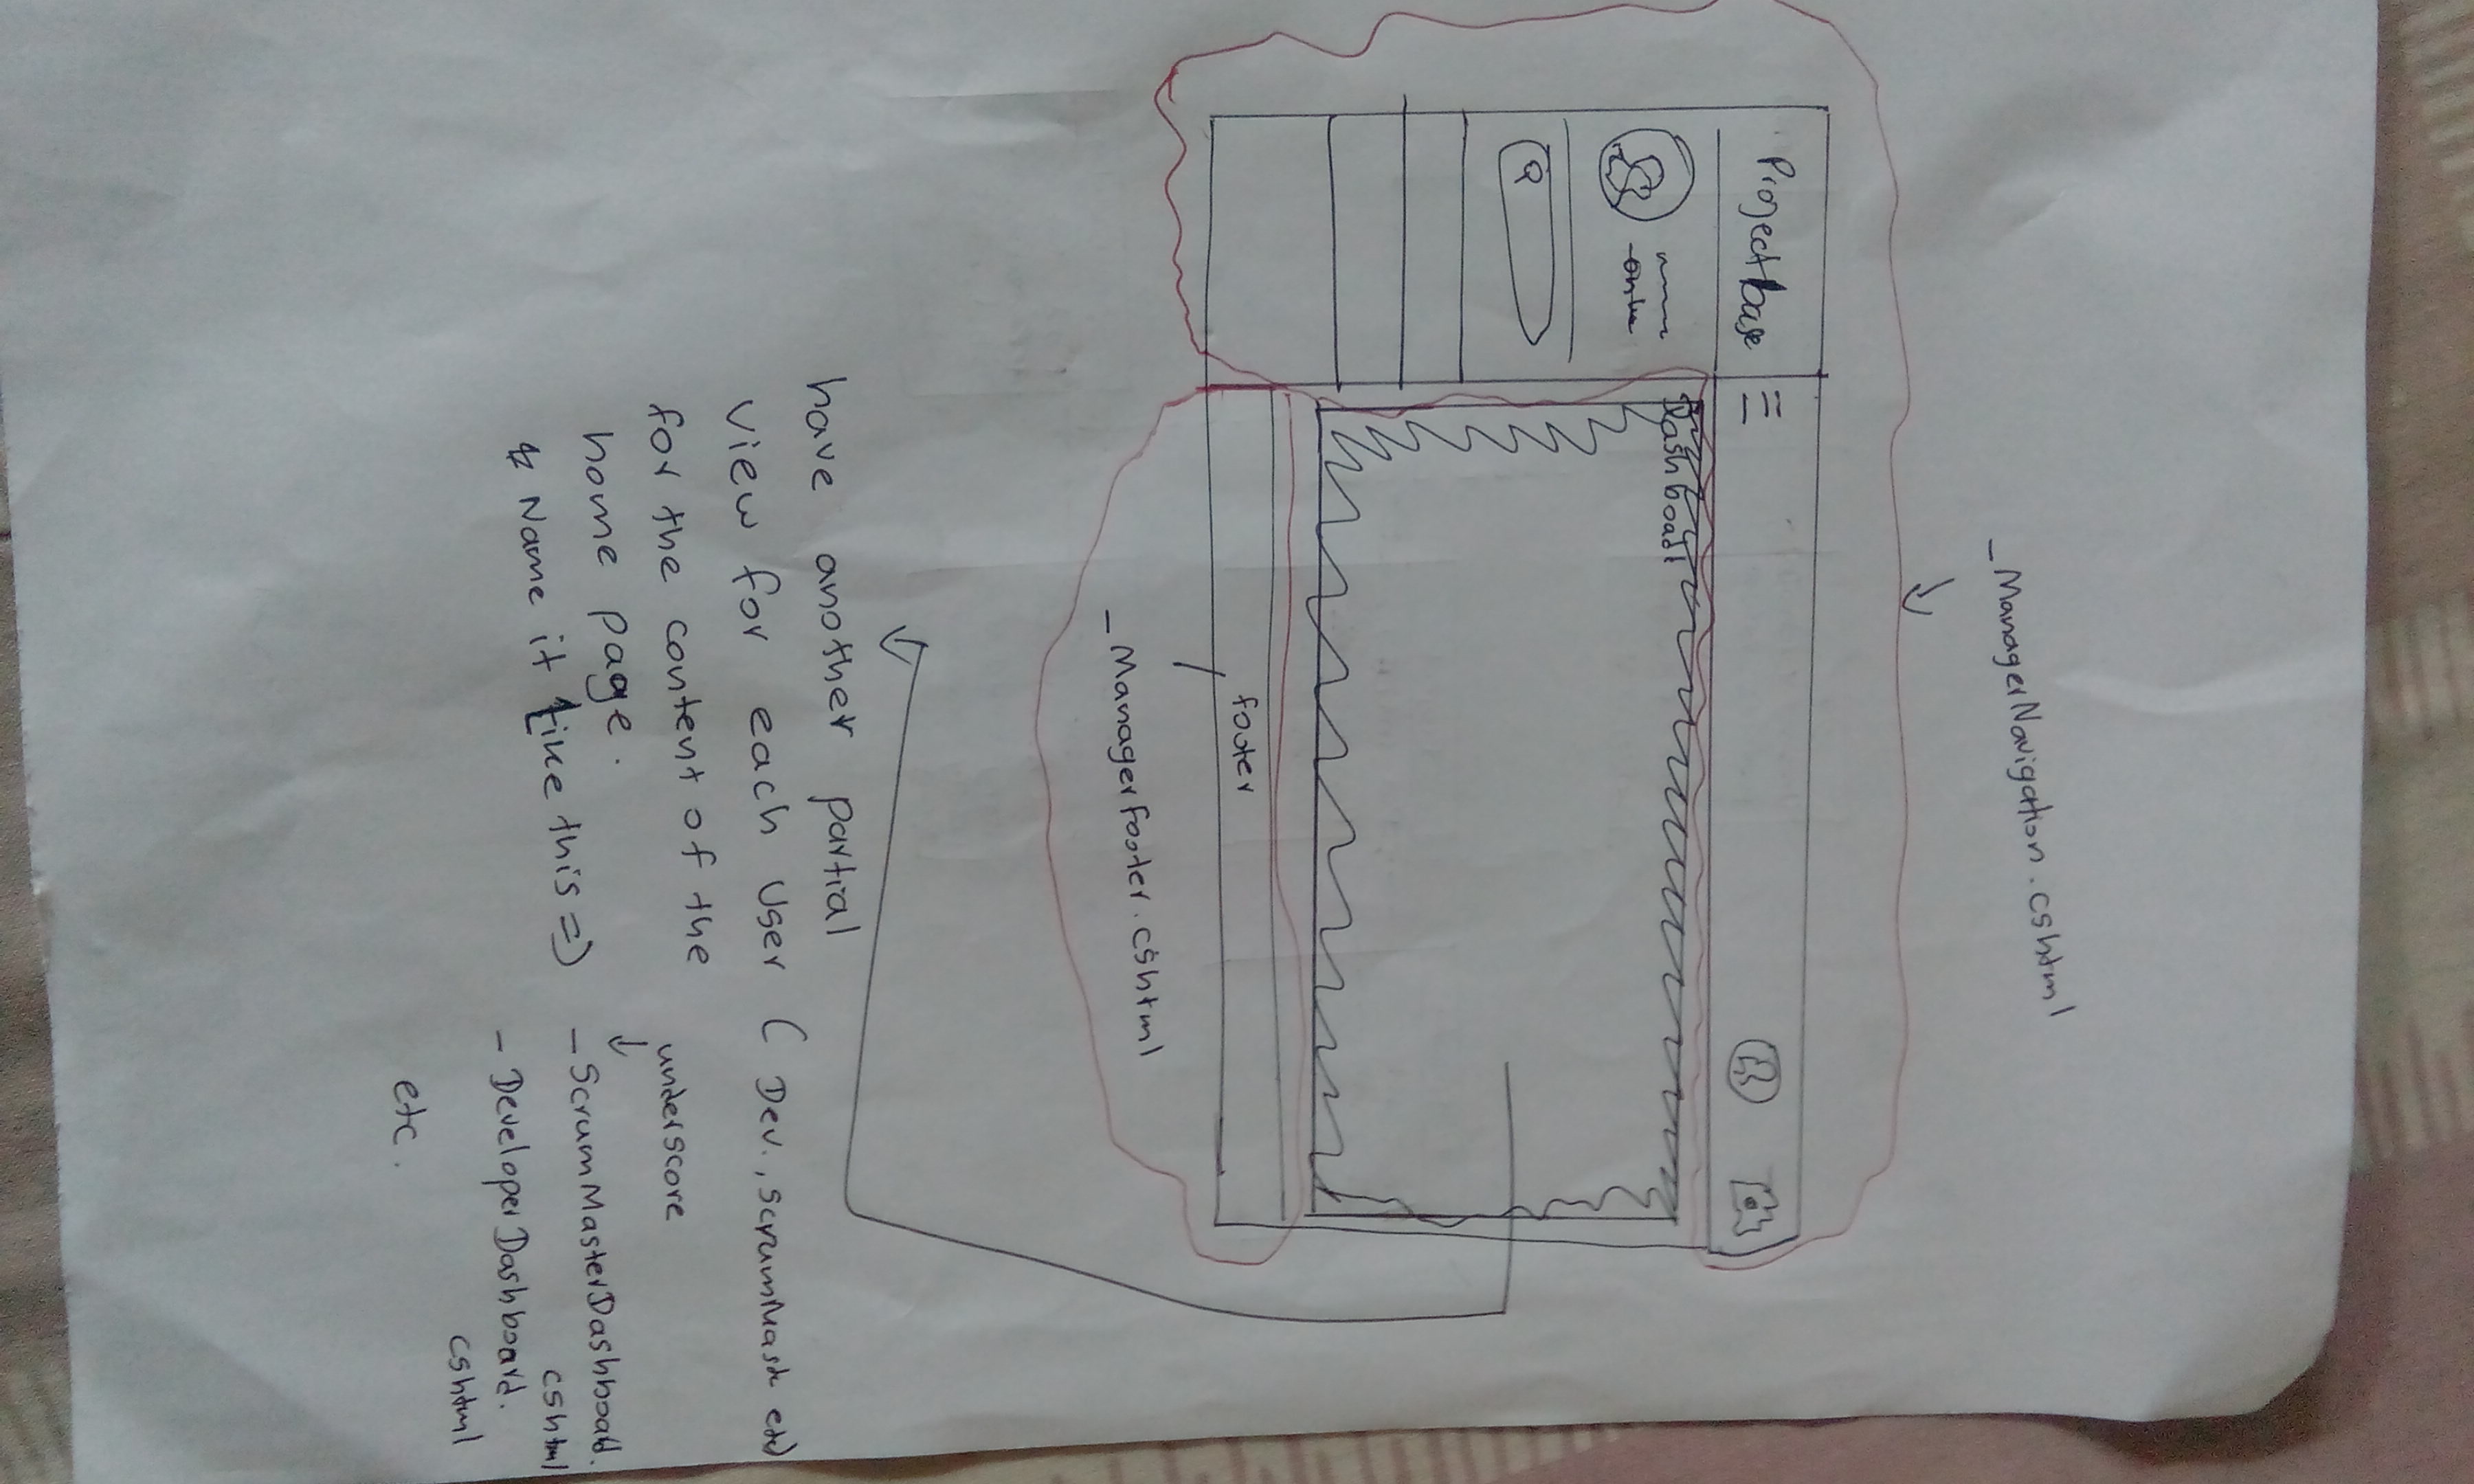 _ManagerNavigation.cshtml
Projectbase
online
Dashboard
footer
_Managerfooter.cshtml
have another partial
view for each user (Dev., scrumMaste etc)
for the content of the
home page.
& Name it Like this =>
underscore
_ScrumMasterDashboard.
cshtml
_DeveloperDashboard.
cshtml
etc.